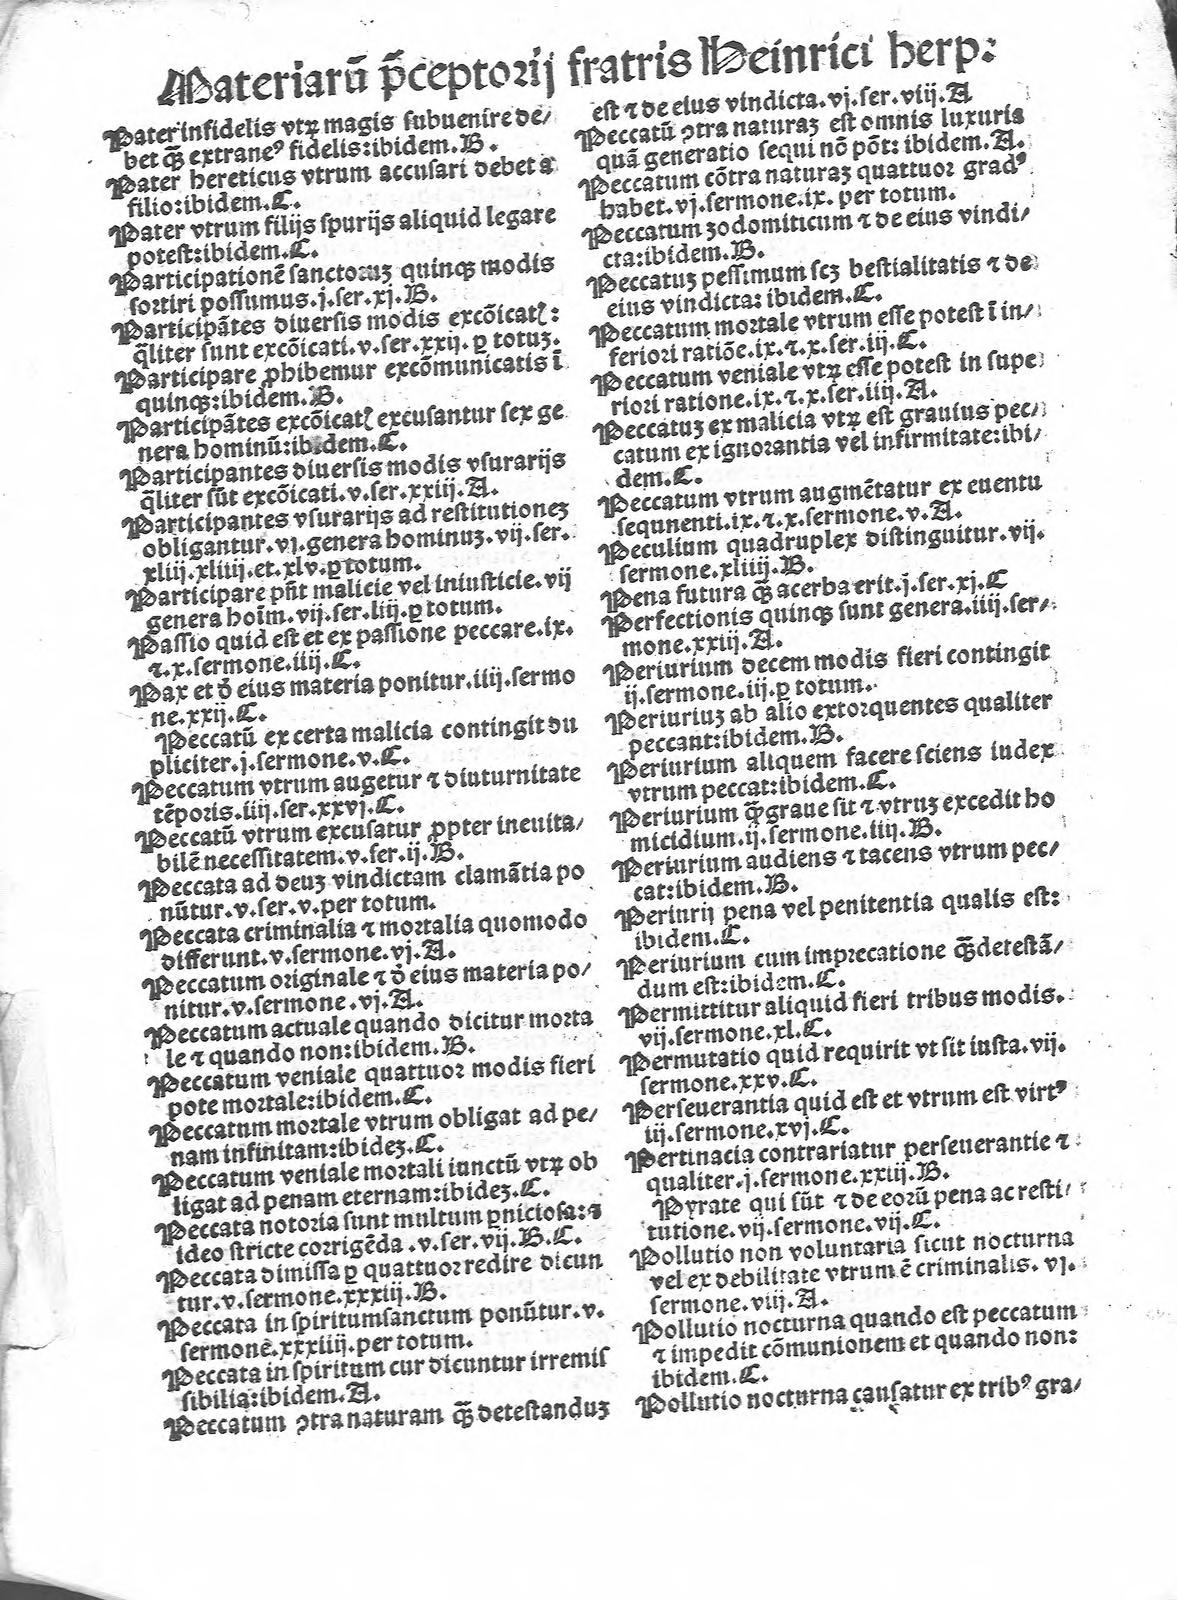 Materiarū p̄ceptorij fratris Heinrici herp:
Pater infidelis vtꝝ magis subuenire de/
bet qꝫ̄ extraneꝰ fidelis:ibidem.B.
Pater hereticus vtrum accusari debet a
filio:ibidem.C.
Pater vtrum filijs spurijs aliquid legare
potest:ibidem.C.
Participationē sanctoruꝫ quinqꝫ modis
sortiri possumus.j.ser.xj.B.
Participātes diuersis modis excōicatꝭ:
q̄liter sunt excōicati.v.ser.xxij.ꝑ totuꝫ.
Participare ꝓhibemur excōmunicatis ī
quinqꝫ:ibidem.B.
Participātes excōicatꝭ excusantur sex ge
nera hominū:ibidem.C.
Participantes diuersis modis vsurarijs
q̄liter sūt excōicati.v.ser.xxiij.A.
Participantes vsurarijs ad restitutioneꝫ
obligantur.vj.genera hominuꝫ.vij.ser.
xliij.xliiij.et.xlv.ꝑ totum.
Participare pn̄t malicie vel iniusticie.vij
genera hoīm.vij.ser.liij.ꝑ totum.
Passio quid est et ex passione peccare.ix.
⁊.x.sermone.iiij.C.
Pax et đ eius materia ponitur.iiij.sermo
ne.xxij.C.
Peccatū ex certa malicia contingit du
pliciter.j.sermone.v.C.
Peccatum vtrum augetur ⁊ diuturnitate
tēporis.iiij.ser.xxvj.C.
Peccatū vtrum excusatur ꝓpter ineuita/
bilē necessitatem.v.ser.ij.B.
Peccata ad deuꝫ vindictam clamātia po
nūtur.v.ser.v.per totum.
Peccata criminalia ⁊ mortalia quomodo
differunt.v.sermone.vj.A.
Peccatum originale ⁊ đ eius materia po/
nitur.v.sermone.vj.A.
Peccatum actuale quando dicitur morta
le ⁊ quando non:ibidem.B.
Peccatum veniale quattuor modis fieri
pote mortale:ibidem.C.
Peccatum mortale vtrum obligat ad pe/
nam infinitam:ibideꝫ.C.
Peccatum veniale mortali iunctū vtꝝ ob
ligat ad penam eternam:ibideꝫ.C.
Peccata notoria sunt multum ꝑniciosa:⁊
ideo stricte corrigēda.v.ser.vij.B.C.
Peccata dimissa ꝑ quattuor redire dicun
tur.v.sermone.xxxiij.B.
Peccata in spiritumsanctum ponūtur.v.
sermone.xxxiiij.per totum.
Peccata in spiritum cur dicuntur irremis
sibilia:ibidem.A.
Peccatum ↄtra naturam qꝫ̄ detestanduꝫ
est ⁊ de eius vindicta.vj.ser.viij.A
Peccatū ↄtra naturaꝫ est omnis luxuria
quā generatio sequi nō pōt:ibidem.A.
Peccatum cōtra naturaꝫ quattuor gradꝰ
habet.vj.sermone.ix.per totum.
Peccatum ꝫodomiticum ⁊ de eius vindi/
cta:ibidem.B.
Peccatuꝫ pessimum scꝫ bestialitatis ⁊ de
eius vindicta:ibidem.C.
Peccatum mortale vtrum esse potest ī in/
feriori ratiōe.ix.⁊.x.ser.iij.C.
Peccatum veniale vtꝝ esse potest in supe
riori ratione.ix.⁊.x.ser.iiij.A.
Peccatuꝫ ex malicia vtꝝ est grauius pec/
catum ex ignorantia vel infirmitate:ibi/
dem.C.
Peccatum vtrum augmētatur ex euentu
sequnenti.ix.⁊.x.sermone.v.A.
Peculium quadruplex distinguitur.vij.
sermone.xliiij.B.
Pena futura qꝫ̄ acerba erit.j.ser.xj.C
Perfectionis quinqꝫ sunt genera.iiij.ser/
mone.xxiij.A.
Periurium decem modis fieri contingit
ij.sermone.iij.ꝑ totum.
Periuriuꝫ ab alio extorquentes qualiter
peccant:ibidem.B.
Periurium aliquem facere sciens iudex
vtrum peccat:ibidem.C.
Periurium qꝫ̄ graue sit ⁊ vtruꝫ excedit ho
micidium.ij.sermone.iiij.B.
Periurium audiens ⁊ tacens vtrum pec/
cat:ibidem.B.
Periurij pena vel penitentia qualis est:
ibidem.C.
Periurium cum imprecatione qꝫ̄ detestā/
dum est:ibidem.C.
Permittitur aliquid fieri tribus modis.
vij.sermone.xl.C.
Permutatio quid requirit vt sit iusta.vij.
sermone.xxv.C.
Perseuerantia quid est et vtrum est virtꝰ
iij.sermone.xvj.C.
Pertinacia contrariatur perseuerantie ⁊
qualiter.j.sermone.xxiij.B.
Pyrate qui sūt ⁊ de eorū pena ac resti/
tutione.vij.sermone.vij.C.
Pollutio non voluntaria sicut nocturna
vel ex debilitate vtrum ē criminalis.vj.
sermone.viij.A.
Pollutio nocturna quando est peccatum
⁊ impedit cōmunionem et quando non:
ibidem.C.
Pollutio nocturna causatur ex tribꝰ gra/